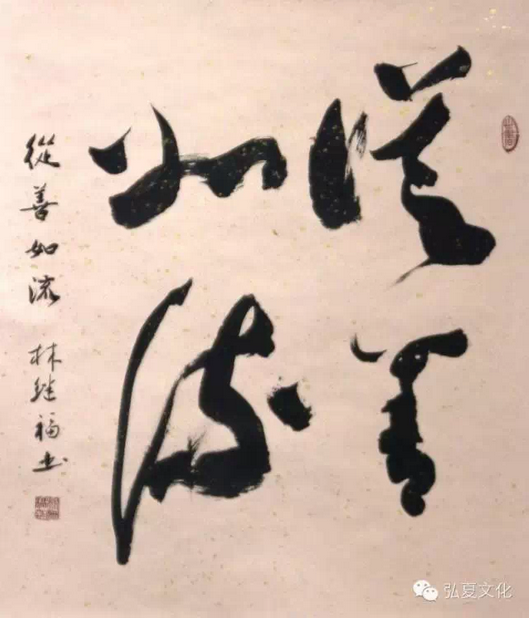 從善
如流
從善如流 林继福书
弘夏文化